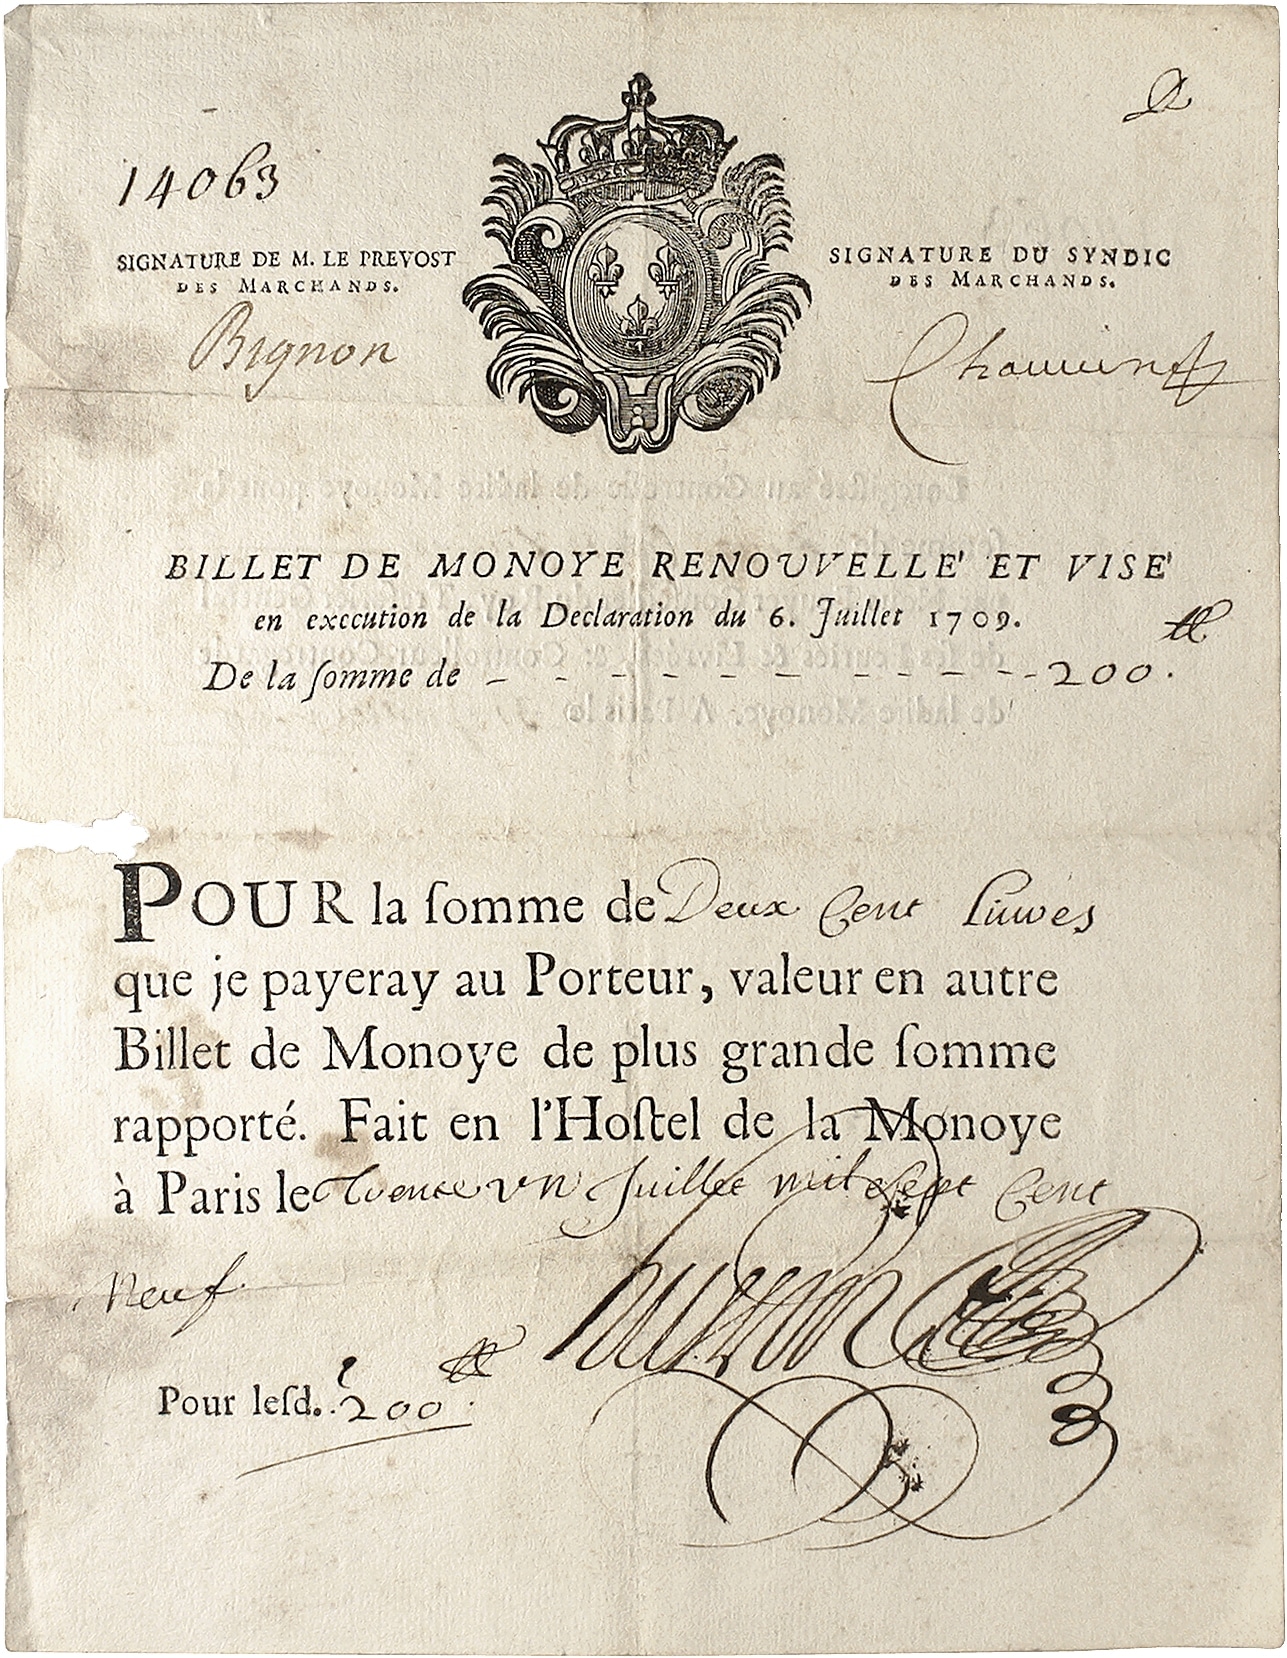 14063
SIGNATURE DE M. LE PREVOST
DES MARCHANDS.
Bignon
SIGNATURE DU SYNDIC
DES MARCHANDS.
BILLET DE MONOYE RENOUVELLE' ET VISE'
en execution de la Declaration du 6. Juillet 1709.
De la ſomme de - - - - - - - - - - -200.
POUR la ſomme de Deux Cent Liures
que je payeray au Porteur, valeur en autre
Billet de Monoye de plus grande ſomme
rapporté. Fait en l'Hoſtel de la Monoye
à Paris le Trente un Juillet mil Sept Cent
Neuf.
Pour leſd. 200